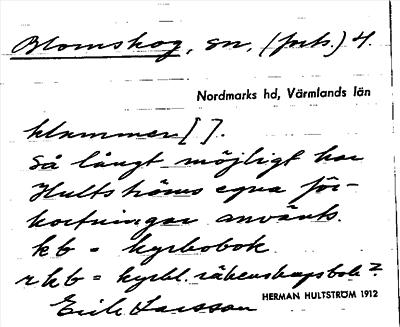 Blomskog, sn, (forts.) 4.
Nordmarks hd, Värmlands län
klammer [ ].
Så långt möjligt har
Hultströms egna för-
kortningar använts.
kb = kyrkobok
rkb = kyrkl. räkenskapsbok?
HERMAN HULTSTRÖM 1912
Erik Larsson